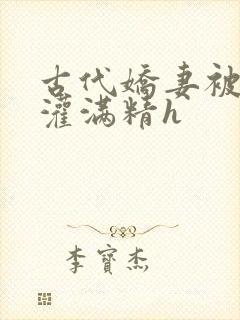 古代嬌妻被
灌滿精h
李寶杰